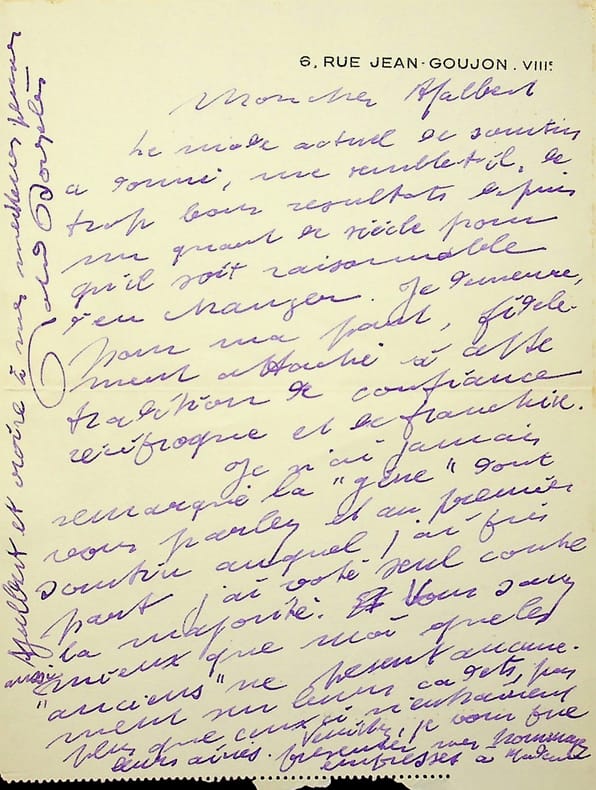 6, RUE JEAN-GOUJON. VIIIe
Mon cher Ajalbert
Le mode actuel de scrutin
a donné, me semble-t-il, de
trop bons résultats depuis
un quart de siècle pour
qu'il soit raisonnable
d'en changer. Je demeure,
pour ma part, fidèle-
ment attaché à cette
tradition de confiance
réciproque et de franchise.
Je n'ai jamais
remarqué la "gêne" dont
vous parlez et au premier
scrutin auquel j'ai pris
part j'ai voté seul contre
la majorité. Vous savez
mieux que moi que les
"anciens" ne pèsent aucune-
ment sur leurs cadets, pas
plus que ceux-ci n'entraînent
leurs aînés. Veuillez, je vous prie
présenter mes hommages
empressés à Madame
Ajalbert et croire à mes meilleures pensées
aussi
Roland Dorgelès